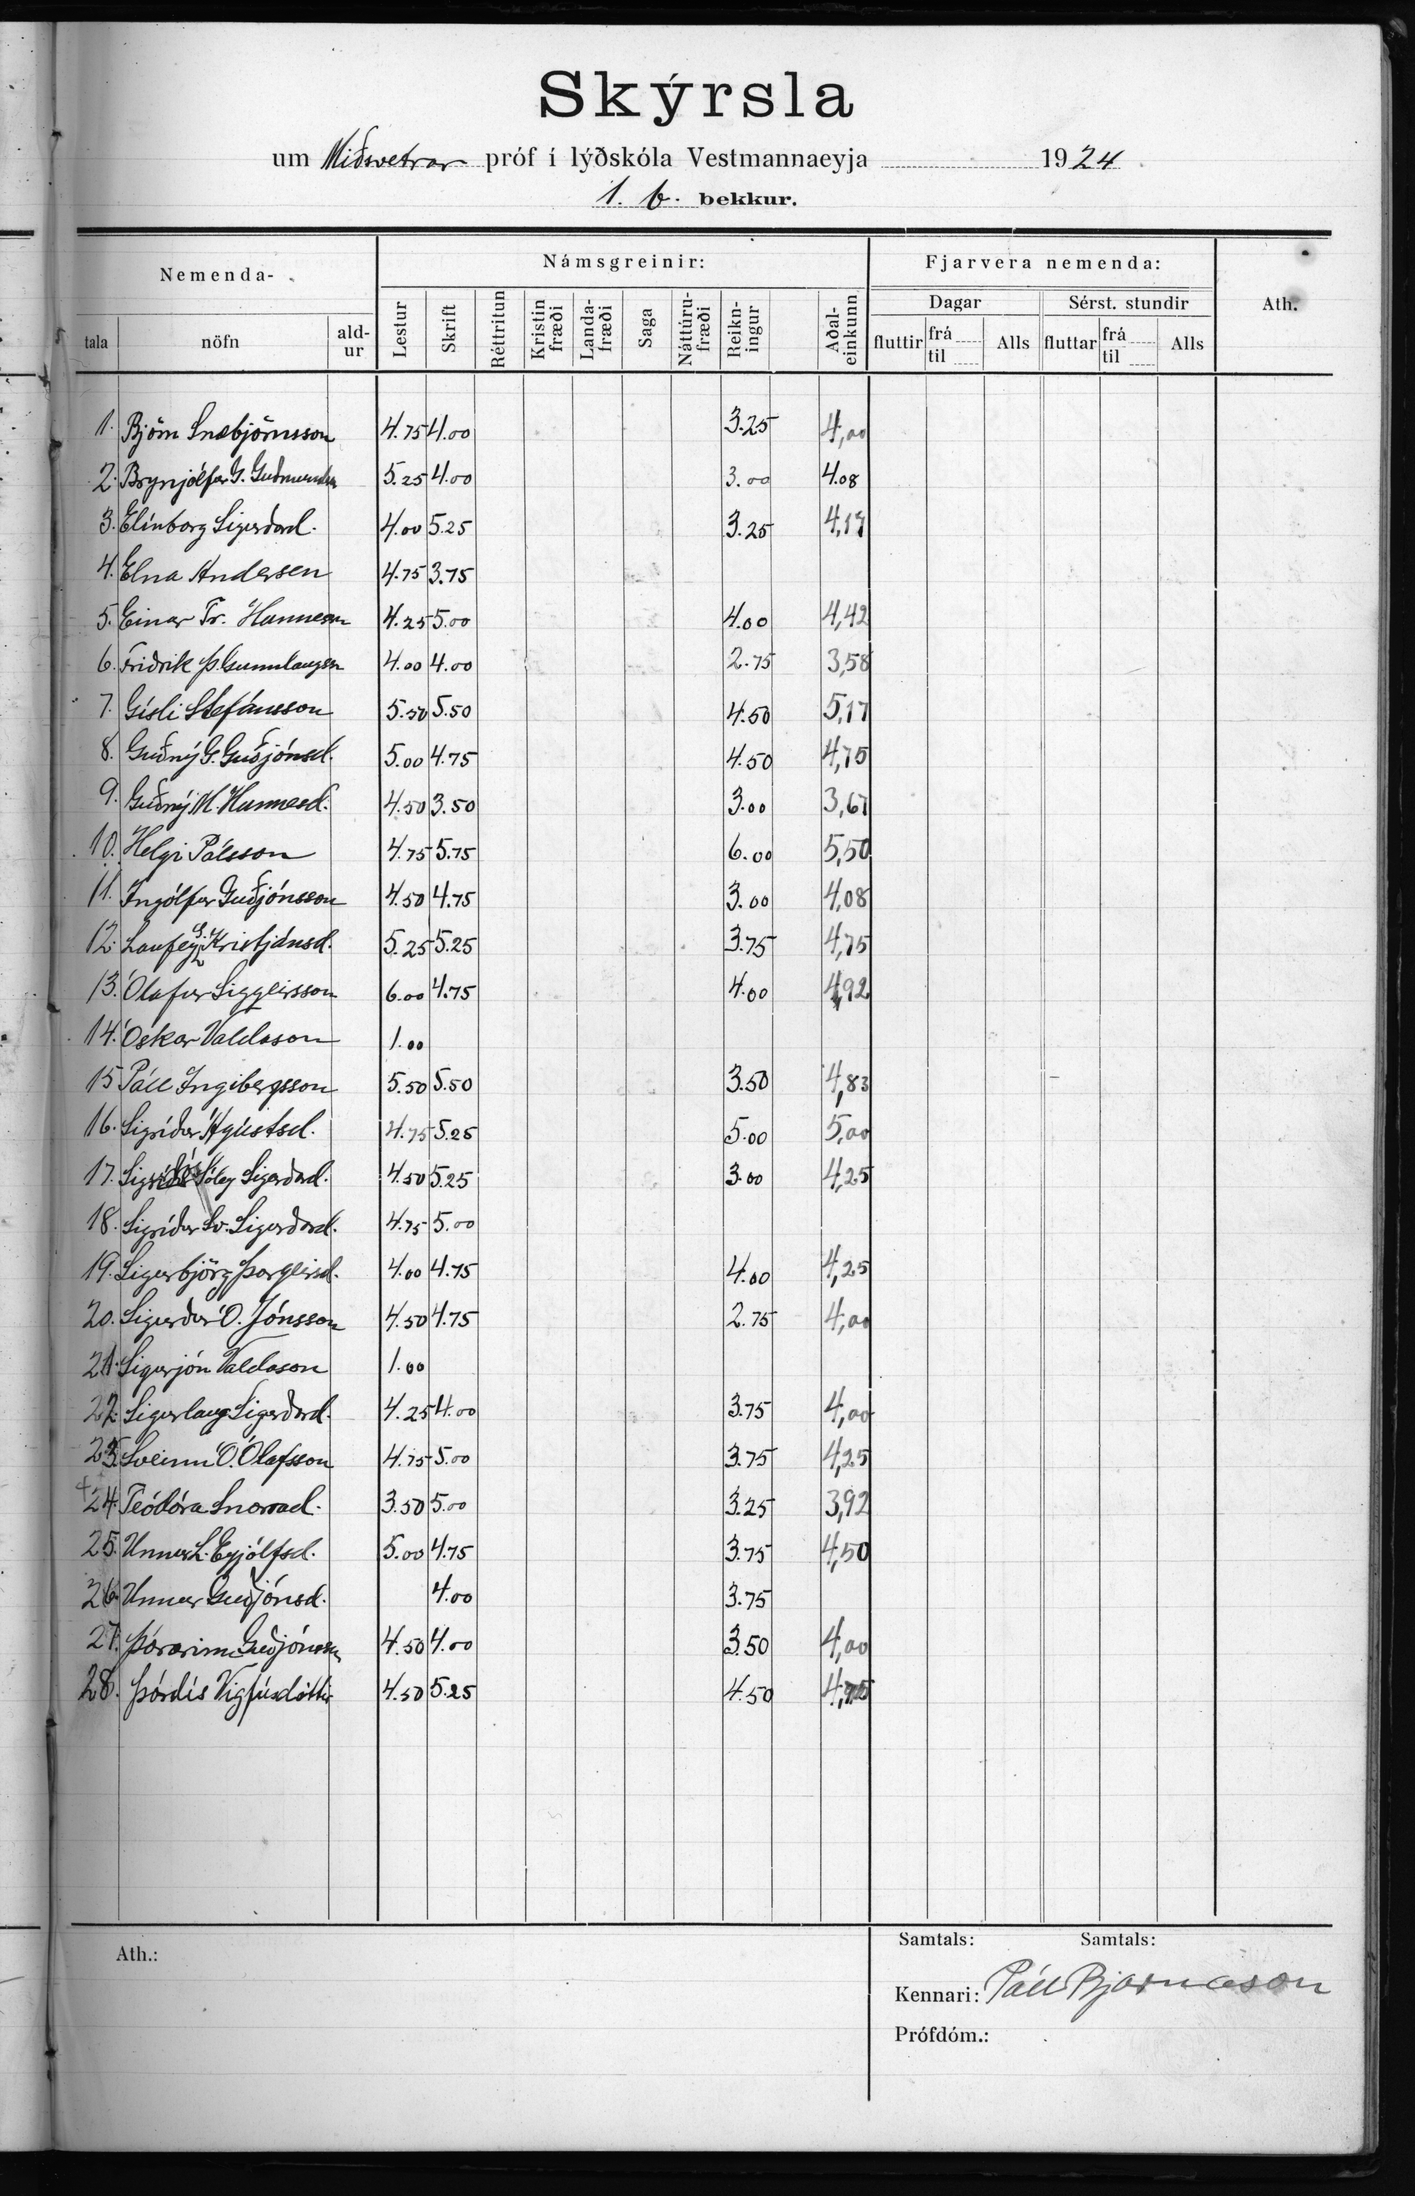 Skýrsla
um Miðsvetrar próf í lýðskóla Vestmannaeyja 1924
1. b. bekkur.
Nemenda- Námsgreinir: Fjarvera nemenda: Ath.
Dagar Sérst. stundir
tala nöfn ald-ur Lestur Skrift Réttritun Kristin fræði Landa-fræði Saga Náttúru-fræði Reikn-ingur Aðal-einkunn fluttir frá til Alls fluttar frá til Alls
1. Björn Snæbjörnsson 4.75 4.00 3.25 4,00
2. Brynjólfur G. Guðmundsson 5.25 4.00 3.00 4.08
3. Elínborg Sigurðard. 4.00 5.25 3.25 4,17
4. Elna Andersen 4.75 3.75
5. Einar Fr. Hannesson 4.25 5.00 4.00 4,42
6. Friðrik Þ. Gunnlaugsson 4.00 4.00 2.75 3,58
7. Gísli Stefánsson 5.50 5.50 4.50 5,17
8. Guðný G. Guðjónsd. 5.00 4.75 4.50 4,75
9. Guðný M. Hannesd. 4.50 3.50 3.00 3,67
10. Helgi Pálsson 4.75 5.75 6.00 5,50
11. Ingólfur Guðjónsson 4.50 4.75 3.00 4,08
12. Laufey G. Kristjánsd. 5.25 5.25 3.75 4,75
13. Ólafur Siggeirsson 6.00 4.75 4.00 4,92
14. Óskar Valdason 1.00
15 Páll Ingibergsson 5.50 5.50 3.50 4,83
16. Sigríður Ágústsd. 4.75 5.25 5.00 5,00
17. Sóley Sigurðard. 4.50 5.25 3.00 4,25
18. Sigríður Sv. Sigurðard. 4.75 5.00
19. Sigurbjörg Þorgeirsd. 4.00 4.75 4.00 4,25
20. Sigurður Ó. Jónsson 4.50 4.75 2.75 4,00
21. Sigurjón Valdason 1.00
22. Sigurlaug Sigurðard. 4.25 4.00 3.75 4,00
23. Sveinn Ó. Ólafsson 4.75 5.00 3.75 4,25
24. Teódóra Snorrad. 3.50 5.00 3.25 3,92
25. Unnur L. Eyjólfsd. 5.00 4.75 3.75 4,50
26. Unnur Guðjónsd. 4.00 3.75
27. Þórarinn Guðjónsson 4.50 4.00 3.50 4,00
28. Þórdís Vigfúsdóttir 4.50 5.25 4.50 4,75
Ath.: Samtals: Samtals:
Kennari: Páll Bjarnason
Prófdóm.: